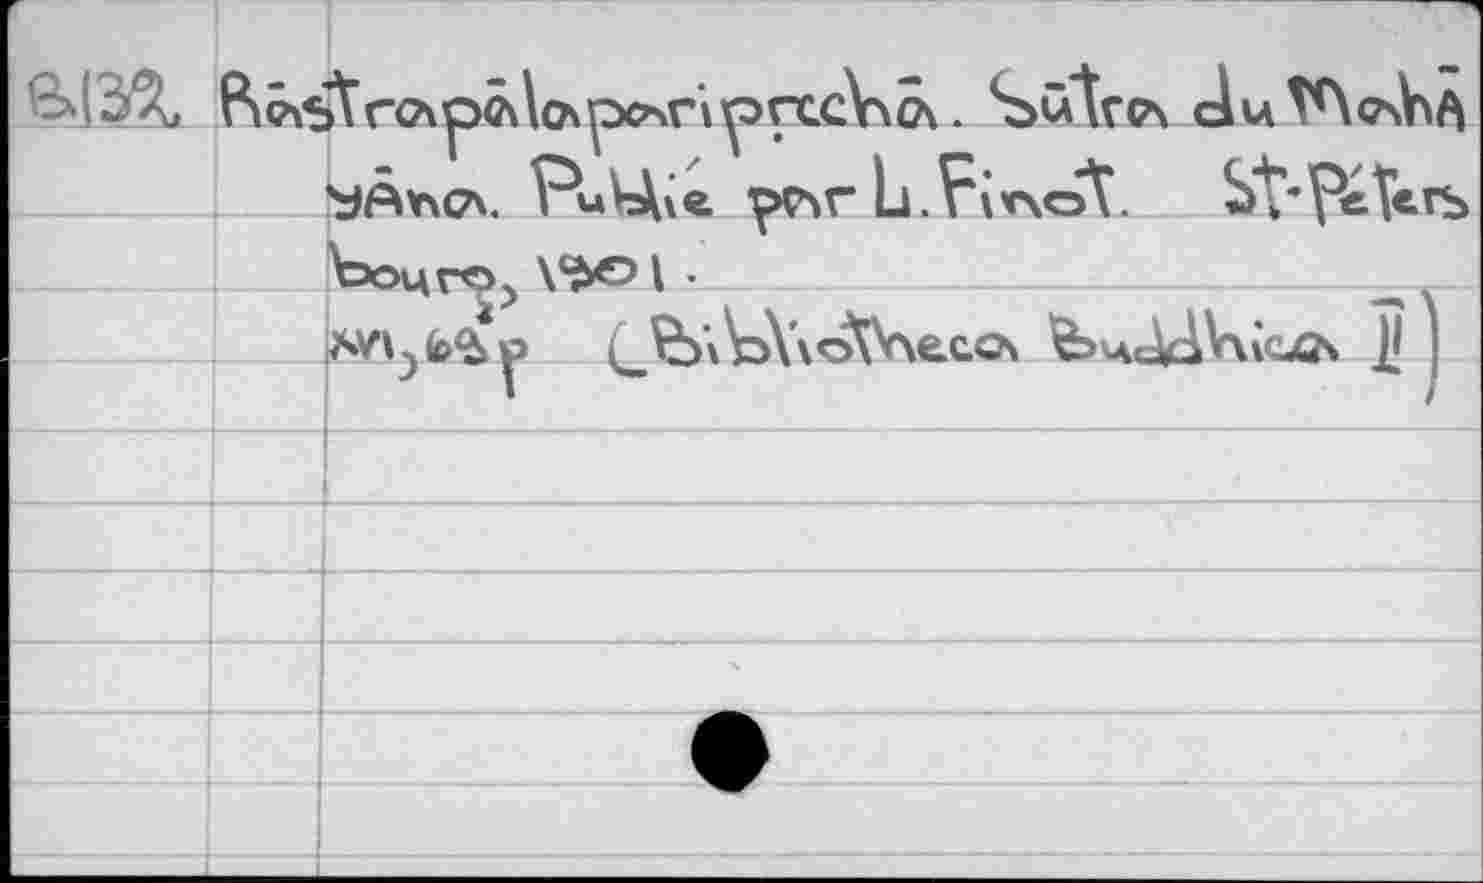 B.132. Rāṣṭrapālaparipṛcchā. Sūtra du Mahā
yāna. Publié par L. Finot. St-Péters
bourg, 1901.
xvi, 69 p (Bibliotheca Buddhica II)